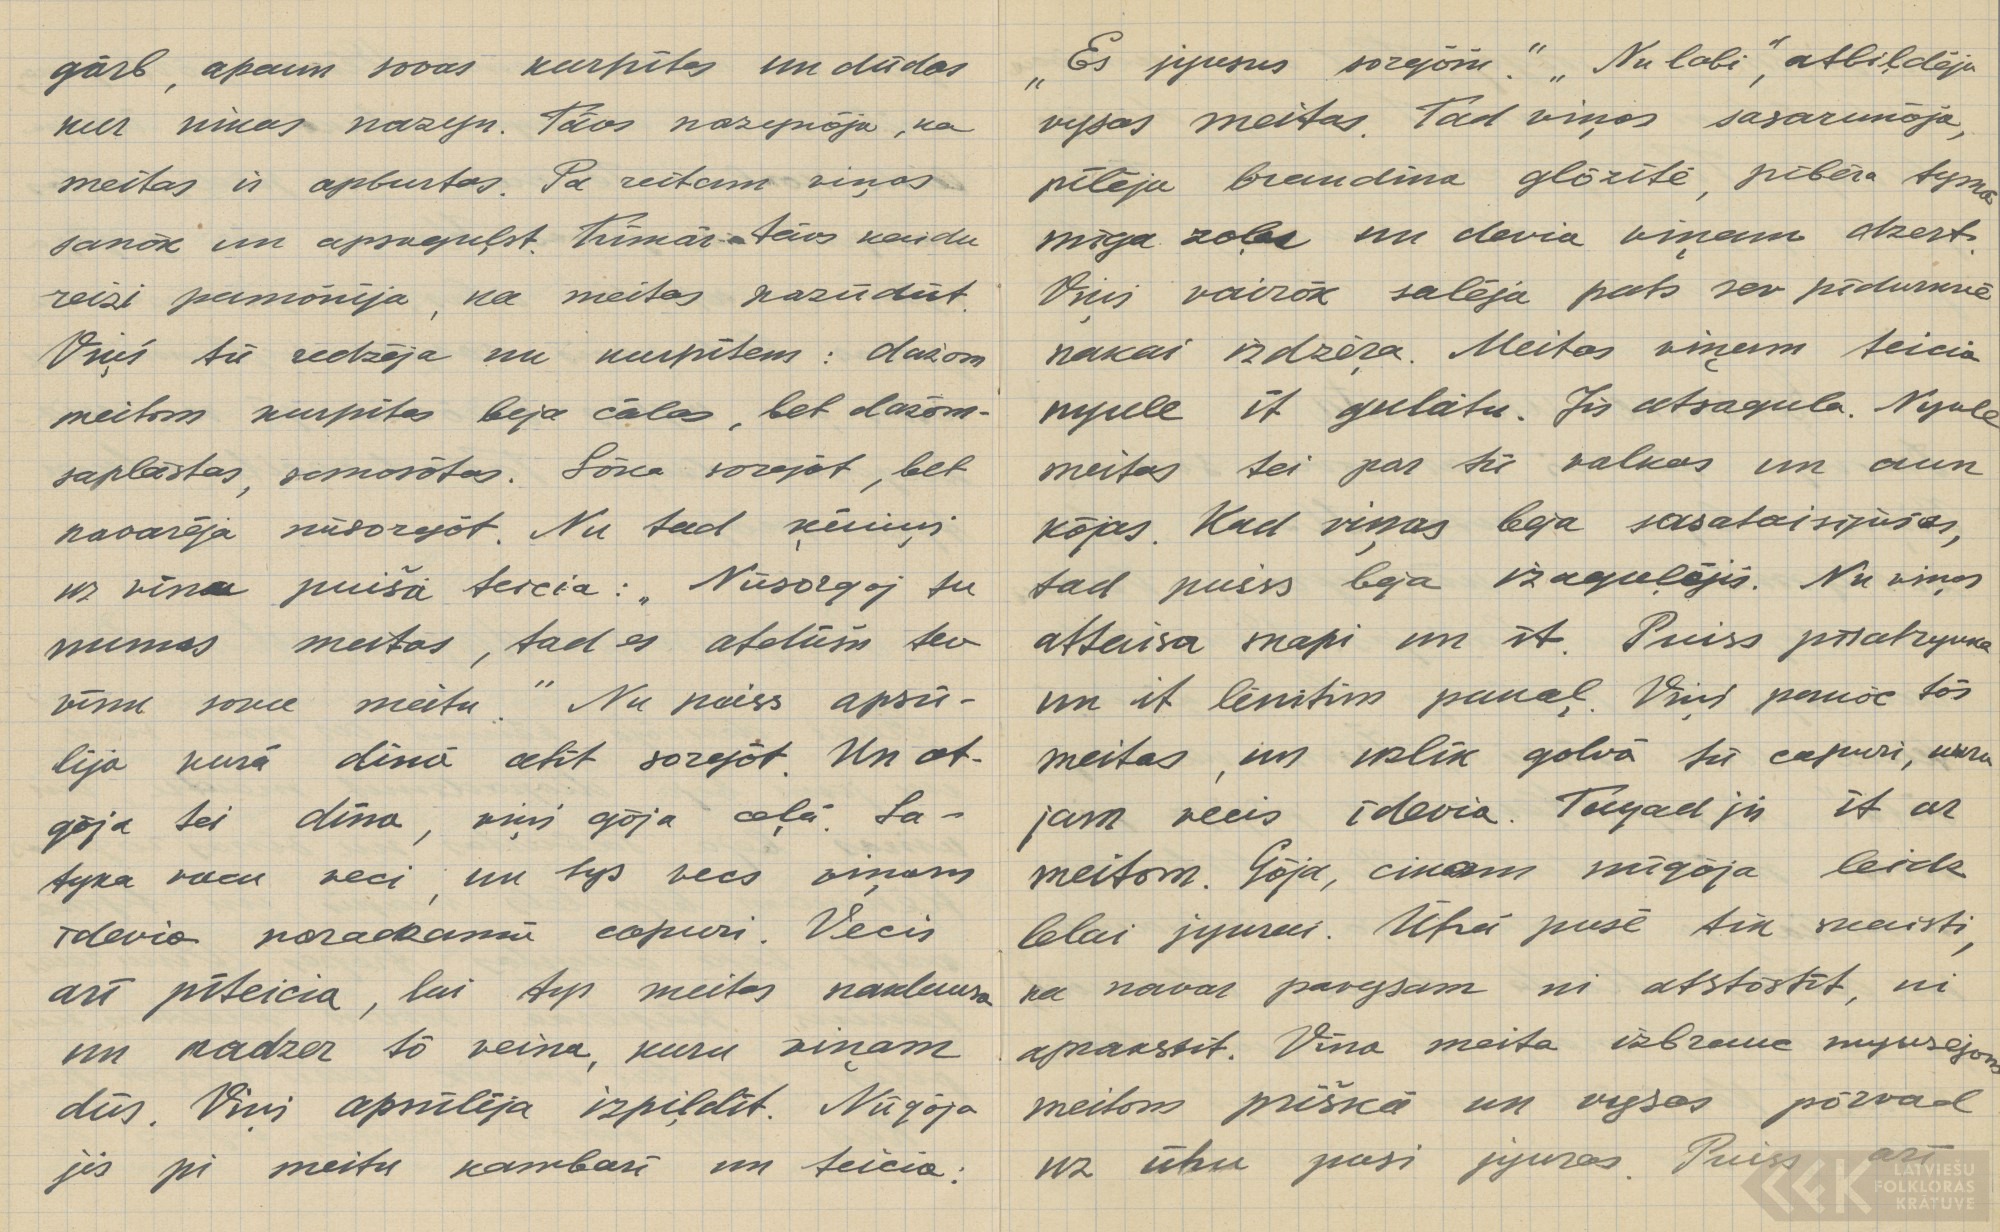 gārb, apaun sovas kurpītes un dūdas
kur nikas nazyn. Tāvs nazynōja, ka
meitas ir apburtas. Pa reitam viņas
sanōk un apsaguļst. Tūmār tāvs kaidu
reizi pamōnīja, ka meitas nazūdūt.
Viņš tū redzēja nu kurpītem: dažom
meitom kurpītes beja čālas, bet dažom-
saplāstas, samosōtas. Sōka sorgōt, bet
navarēja nūsorgōt. Nu tad ķēniņš
uz vīna puiša teicia: „Nūsorgoj tu
munas meitas, tad es atdūšu tev
vīnu sovu meitu." Nu puiss apsū-
lija kurā dīnā atīt sorgōt. Un at-
gōja tei dīna, viņš gōja ceļā. Sa-
tyka vacu veci, un tys vecs viņam
īdevia naradzamū capuri. Vecis
arī pīteicia, lai tys meitas naklausa
un nadzer tō veina, kuru viņam
dūs. Viņš apsūlēja izpiļdīt. Nūgōja
jis pi meitu kambarī un teicia:
„Es jyusus sorgōšu." „Nu labi", atbiļdēja
vysas meitas. Tad viņas sasarunōja,
pīlēja brandiņa glōzītē, pībēra tymā
mīga zoles un devia viņam dzert.
Viņš vairōk salēja pats sev pīdurknē
nakai izdzēŗa. Meitas viņam teicia
nyule īt gulātu. Jis atsagula. Nyule
meitas tei par tū valkas un aun
kōjas. Kad viņas beja sasataisijušas,
tad puiss beja izaguļējis. Nu viņas
attaisa skapi un īt. Puiss pīsatryuka
un it lēnītim pakaļ. Viņš panōc tōs
meitas, un uzlīk golvā tū capuri, kuru
jam vecis īdevia. Tagad jis īt ar
meitom. Gōja, cikam nūgōja leidz
lelai jyurai. Ūtrā pusē tik skaisti,
ka navar pavysam ni atstōstīt, ni
aprakstīt. Vīna meita izbrauc myusējom
meitom prīškā un vysas pōrvad
uz ūtru pusi jyuras. Puiss arī
LATVIEŠU
FOLKLORAS
KRĀTUVE